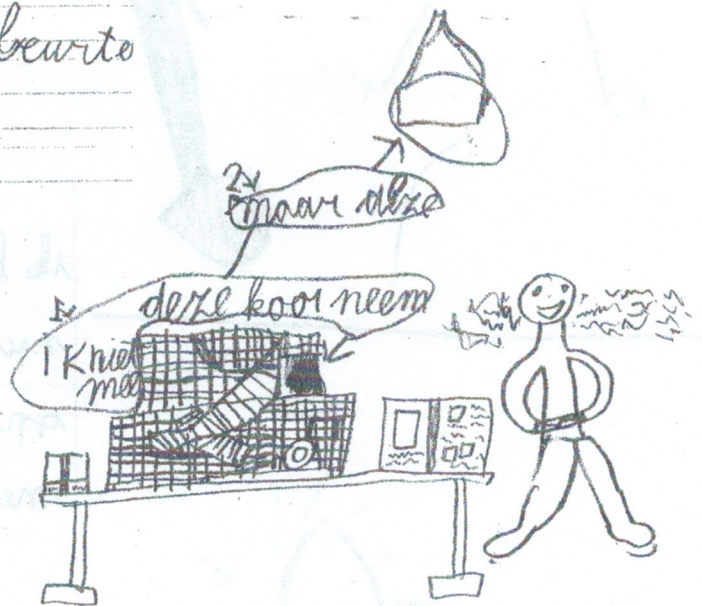 beurte
2
maar deze
1
deze kooi neem
ik niet
mee